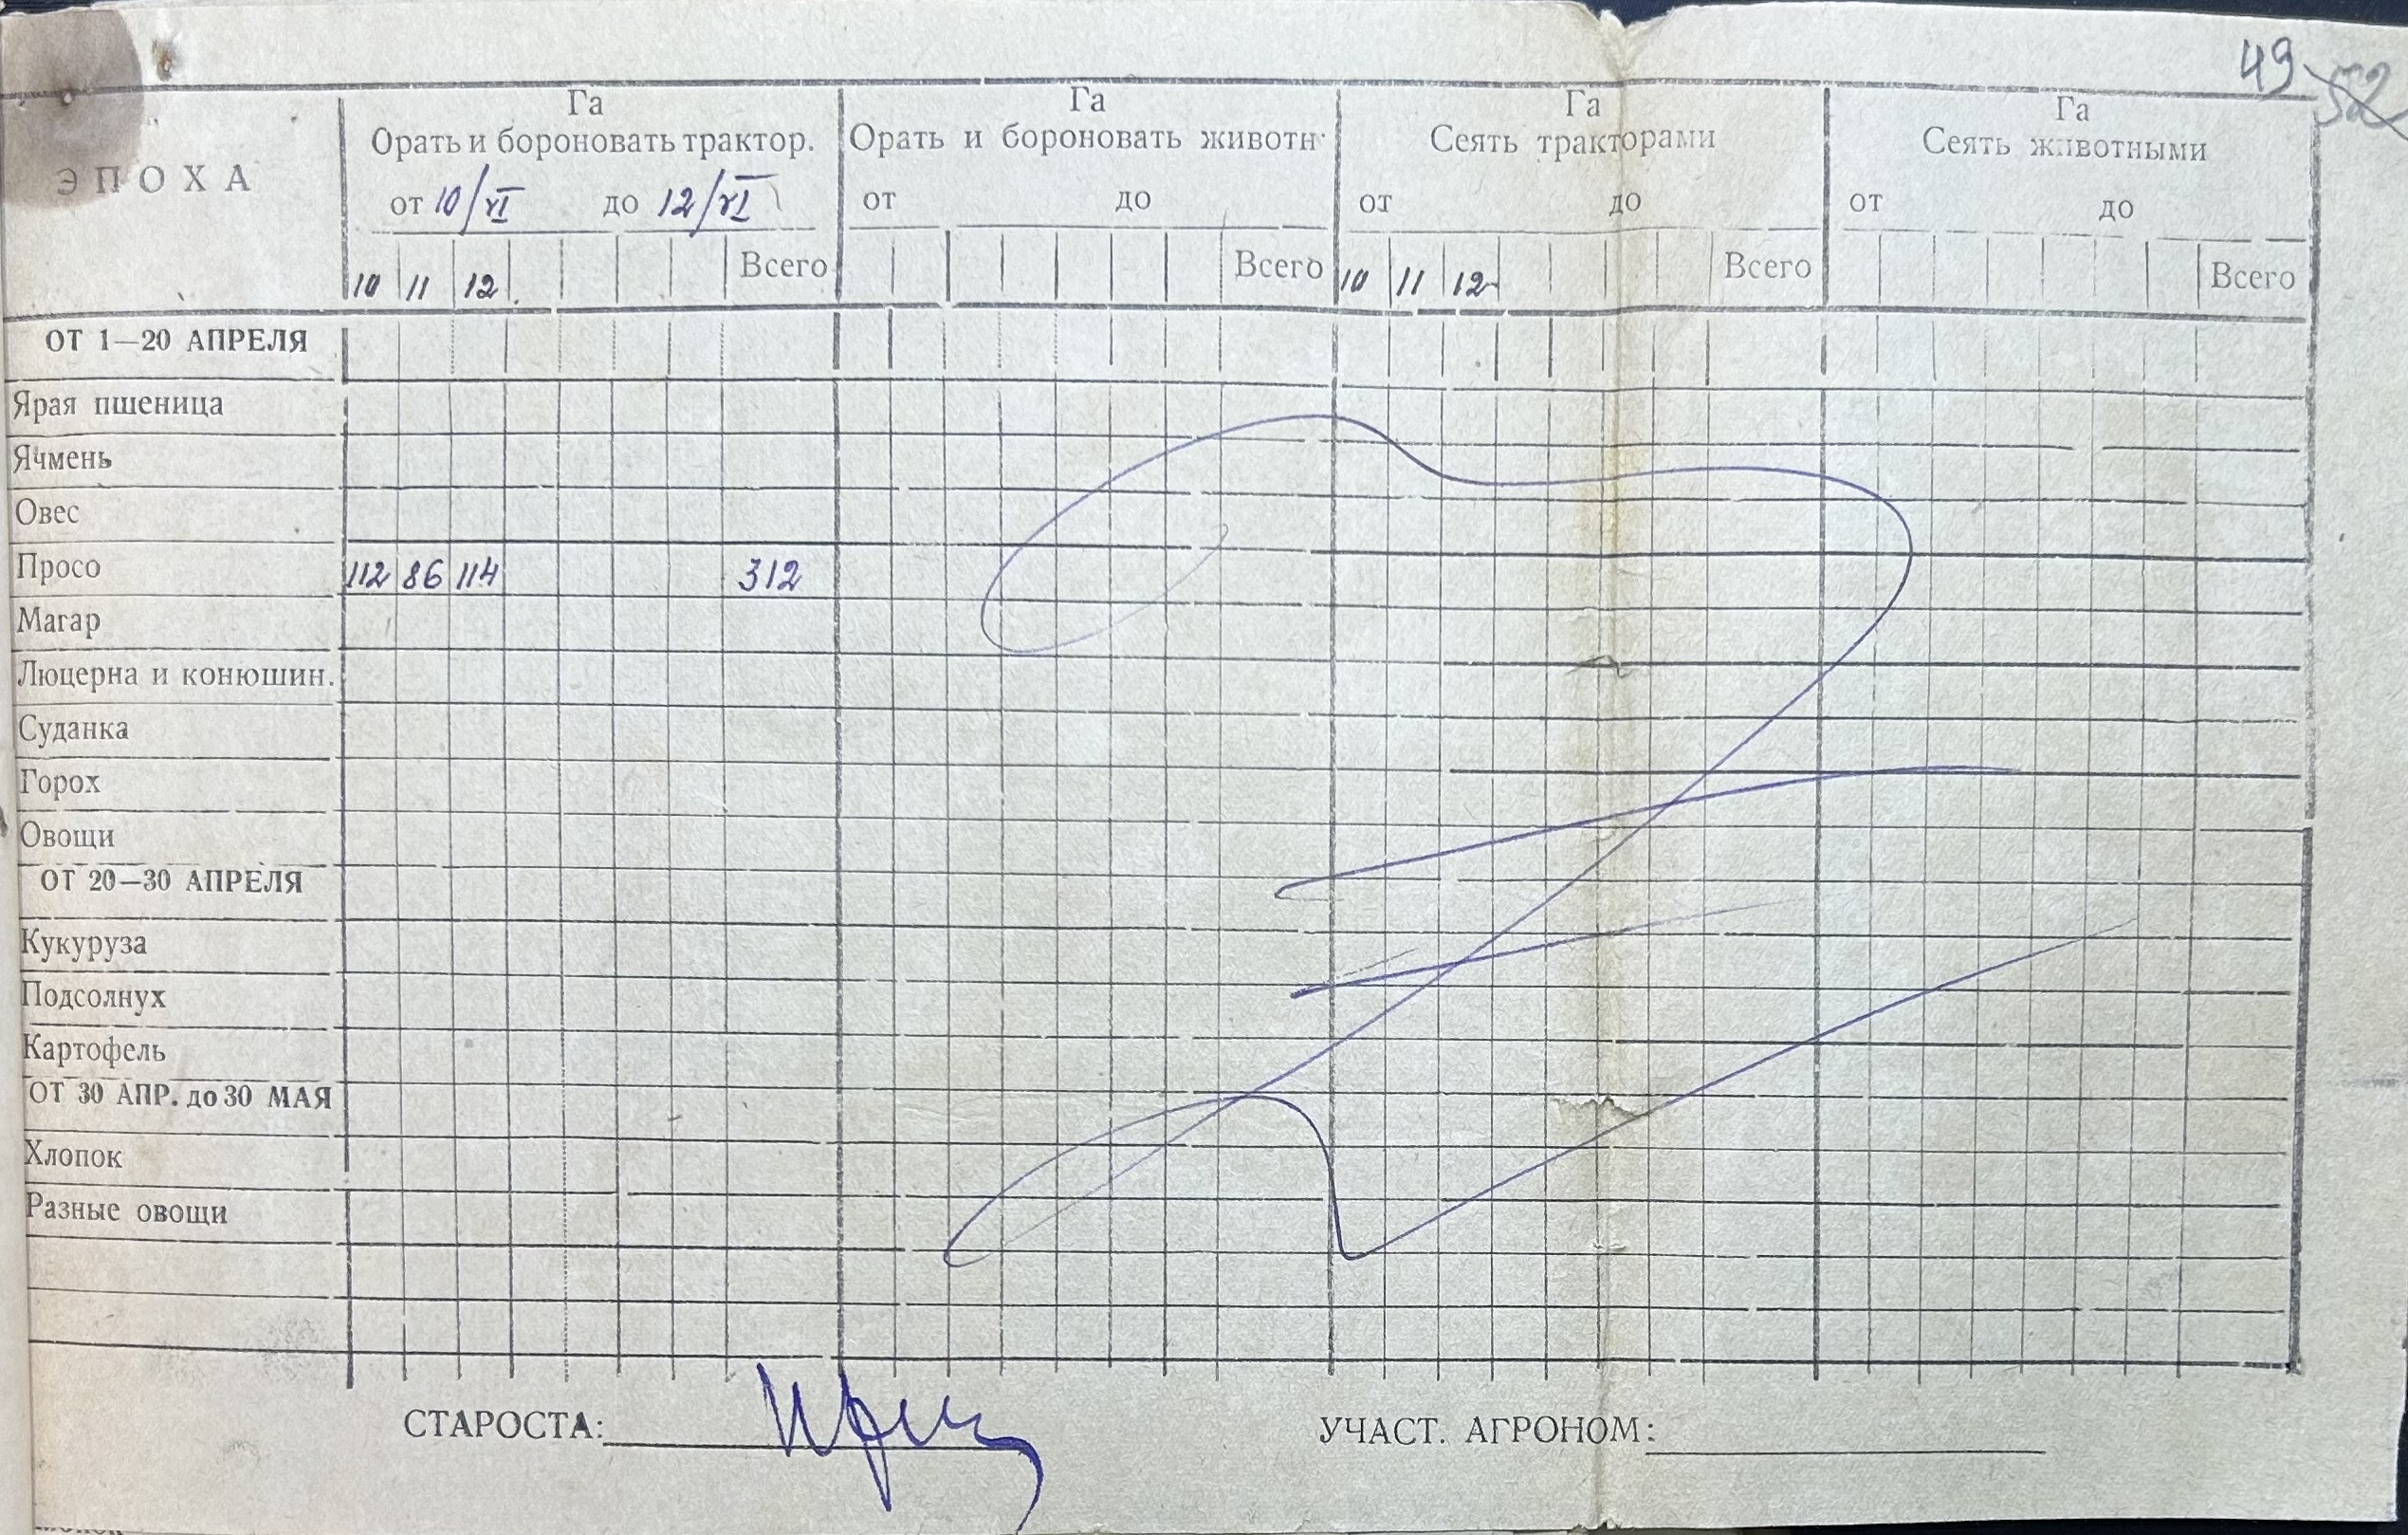 49 52
Га Га Га Га
ЭПОХА Орать и бороновать трактор. Орать и бороновать животн. Сеять тракторами Сеять животными
от 10/VI до 12/VI от до от до от до
10 11 12 Всего Всего 10 11 12 Всего Всего
ОТ 1—20 АПРЕЛЯ
Ярая пшеница
Ячмень
Овес
Просо 112 86 114 312
Магар
Люцерна и конюшин.
Суданка
Горох
Овощи
ОТ 20—30 АПРЕЛЯ
Кукуруза
Подсолнух
Картофель
ОТ 30 АПР. до 30 МАЯ
Хлопок
Разные овощи
СТАРОСТА: УЧАСТ. АГРОНОМ: